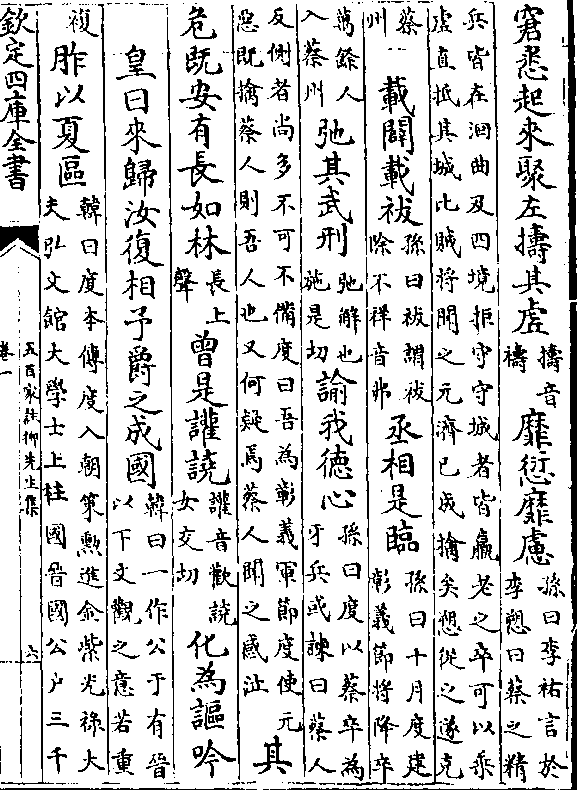 窘悉起來聚左擣其虛
擣音
禱
靡愆靡慮
孫曰李祐言於
李愬曰蔡之精
兵皆在洄曲及四境拒守守城者皆羸老之卒可以乘
虛直抵其城比賊將聞之元濟已成擒矣愬從之遂克
蔡
州
載闢載祓
孫曰祓謂祓
除不祥音弗
丞相是臨
孫曰十月度建
彰義節將降卒
萬餘人
入蔡州
弛其武刑
弛解也
施是切
諭我德心
孫曰度以蔡卒為
牙兵或諫曰蔡人
反側者尚多不可不備度曰吾為彰義軍節度使元
惡既擒蔡人則吾人也又何疑焉蔡人聞之感泣
其
危既安有長如林
長上
聲
曾是讙譊
讙音歡譊
女交切
化為謳吟
皇曰來歸汝復相予爵之成國
韓曰一作公于有晉
以下文觀之意若重
複
胙以夏區
韓曰度本傳度入朝策勲進金紫光祿大
夫弘文館大學士上柱國晉國公户三千
欽定四庫全書
卷一
五百家註柳先生集
六